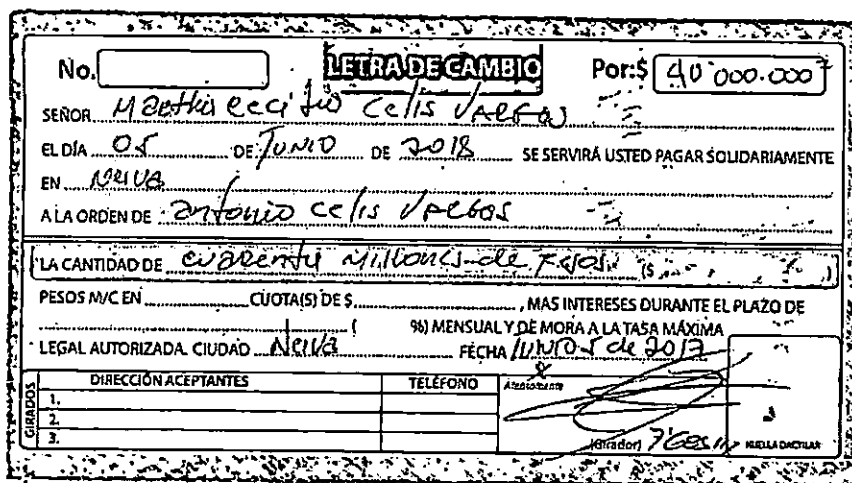 No. LETRA DE CAMBIO Por:$ 40'000.000
SEÑOR Martha Celis Vargas
EL DÍA 05 DE Junio DE 2018 SE SERVIRÁ USTED PAGAR SOLIDARIAMENTE
EN Neiva
A LA ORDEN DE antonio Celis Vargas
LA CANTIDAD DE cuarenta Millones de pesos ($ )
PESOS M/C EN CUOTA(S) DE $ , MAS INTERESES DURANTE EL PLAZO DE
( %) MENSUAL Y DE MORA A LA TASA MÁXIMA
LEGAL AUTORIZADA. CIUDAD Neiva FECHA Junio 5 de 2017
GIRADOS DIRECCIÓN ACEPTANTES TELÉFONO Atentamente
1.
2.
3.
(Girador) HUELLA DACTILAR